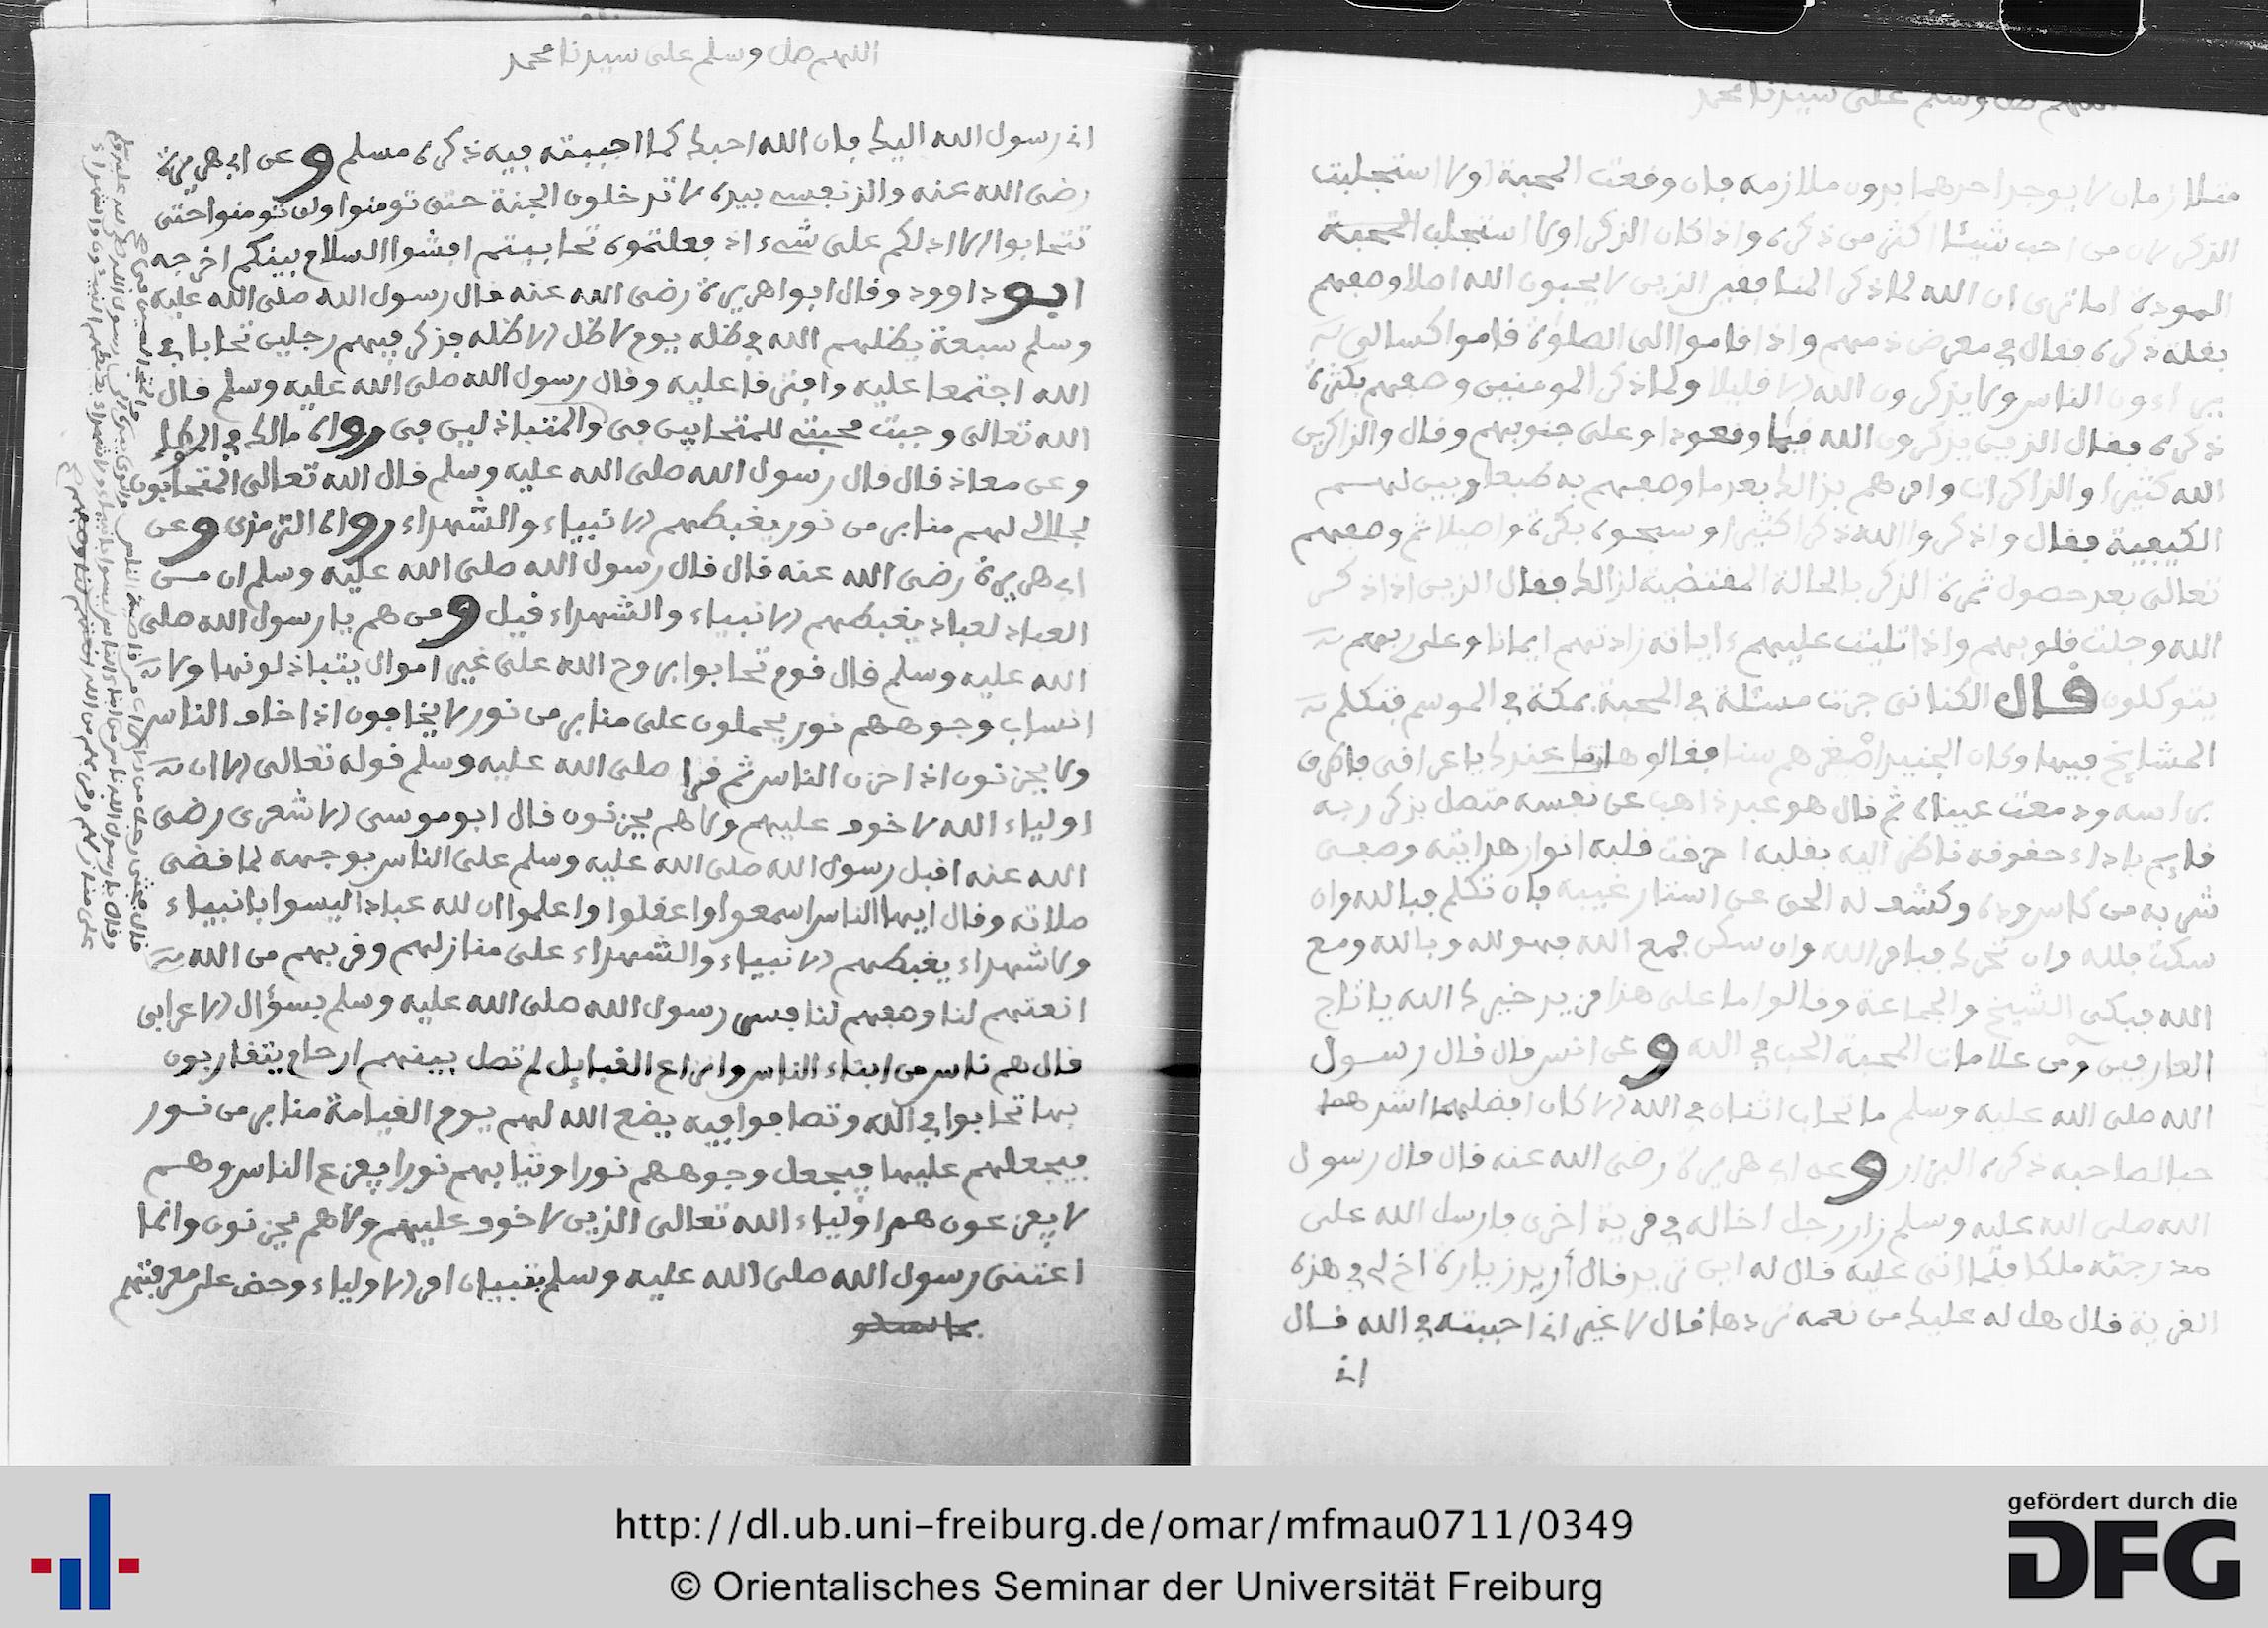 اللهم صل وسلم على سيدنا محمد
متلازمان لا يوجد احدهما بدون ملازمه فان وقعت المحبة اولا استجلبت
الذكر لان من احب شيئا اكثر من ذكره واذا كان الذكر اولا استجلب المحبة
المودة اما ترى ان الله لما ذكر المنافقين الذين لا يحبون الله اصلا وصفهم
بقلة ذكره فقال في معرض ذمهم واذا قاموا الى الصلوة قاموا كسالى
يراءون الناس ولا يذكرون الله الا قليلا ولما ذكر المومنين وصفهم بكثرة
ذكره فقال الذين يذكرون الله قيما وقعودا وعلى جنوبهم وقال والذاكرين
الله كثيرا والذاكرات وامرهم بذالك بعد ما وصفهم به طبعا وبين لهم
الكيفية فقال واذكروا الله ذكرا كثيرا وسبحوه بكرة واصيلا ثم وصفهم
تعالى بعد حصول ثمرة الذكر بالحالة المقتضية لذالك فقال الذين اذا ذكر
الله وجلت قلوبهم واذا تليت عليهم ءاياته زادتهم ايمانا وعلى ربهم
يتوكلون قال الكتانى جرت مسئلة في المحبة بمكة في الموسم فتكلم
المشايخ فيها وكان الجنيد اصغرهم سنا فقالوا هات ما عندك يا عراقى فاطرق
براسه ودمعت عيناه ثم قال هو عبد ذاهب عن نفسه متصل بذكر ربه
قايم باداء حقوقه ناظر اليه بقلبه احرقت قلبه انوار هدايته وصفى
شربه من كاس وده وكشف له الحق عن استار غيبه فان تكلم فبالله وان
سكت فلله وان تحرك فبامر الله وان سكن فمع الله فهو لله وبالله ومع
الله فبكى الشيخ والجماعة وقالوا ما على هذا مزيد خيرك الله يا تاج
العارفين ومن علامات المحبة الحب في الله وعن انس قال قال رسول
الله صلى الله عليه وسلم ما تحاب اثنان في الله الا كان افضلهما اشدهما
حبا لصاحبه ذكره البزار وعن ابى هريرة رضى الله عنه قال قال رسول
الله صلى الله عليه وسلم زار رجل اخا له في قرية اخرى فارسل الله على
مدرجته ملكا فلما اتى عليه قال له اين تريد قال أريد زيارة اخ لى في هذه
القرية قال هل له عليك من نعمه تردها قال لا غير انى احببته في الله قال
انى
اللهم صل وسلم على سيدنا محمد
انى رسول الله اليك بان الله احبك كما احببته فيه ذكره مسلم وعن ابى هريرة
رضى الله عنه والذ نفسى بيده لا تدخلون الجنة حتى تومنوا ولن تومنوا حتى
تتحابوا الا ادلكم على شىء اذ فعلتموه تحاببتم افشوا السلام بينكم اخرجه
ابو داوود وقال ابوا هريرة رضى الله عنه قال رسول الله صلى الله عليه
وسلم سبعة يظلهم الله في ظله يوم لا ظل الا ظله فذكر فيهم رجلين تحابا في
الله اجتمعا عليه وافترقا عليه وقال رسول الله صلى الله عليه وسلم قال
الله تعالى وجبت محبتى للمتحابين فى والمتباذلين فى رواه مالك في الموطإ
وعن معاذ قال قال رسول الله صلى الله عليه وسلم قال الله تعالى المتحابون
لجلالى لهم منابر من نور يغبطهم الانبياء والشهداء رواه الترمزى وعن
ابى هريرة رضى الله عنه قال قال رسول الله صلى الله عليه وسلم ان من
العباد لعباد يغبطهم الانبياء والشهداء قيل ومن هم يا رسول الله صلى
الله عليه وسلم قال قوم تحابوا بروح الله على غير اموال يتباذلونها ولا
انساب وجوههم نور يحملون على منابر من نور لا يخافون اذا خاف الناس
ولا يحزنون اذا حزن الناس ثم قرا صلى الله عليه وسلم قوله تعالى الا ان
اولياء الله لا خوف عليهم ولا هم يحزنون قال ابو موسى الاشعرى رضى
الله عنه اقبل رسول الله صلى الله عليه وسلم على الناس بوجهه لما قضى
صلاته وقال ايها الناس اسمعوا واعقلوا واعلموا ان لله عبادا ليسوا بانبياء
ولا شهداء يغبطهم الانبياء والشهداء على منازلهم وقربهم من الله
انعتهم لنا وصفهم لنا فسر رسول الله صلى الله عليه وسلم بسؤال الاعرابى
قال هم ناس من ابناء الناس وانزاع القبايل لم تصل بينهم ارحام يتقاربون
بها تحابوا في الله وتصافوا فيه يضع الله لهم يوم القيامة منابر من نور
فيجعلهم عليها فيجعل وجوههم نورا وثيابهم نورا يفزع الناس وهم
لا يفزعون هم اولياء الله تعالى الذين لا خوف عليهم ولا هم يحزنون وانما
اعتنى رسول الله صلى الله عليه وسلم بتبيان امر الاولياء وحض على معرفتهم
http://dl.ub.uni-freiburg.de/omar/mfmau0711/0349
© Orientalisches Seminar der Universität Freiburg
gefördert durch die
DFG